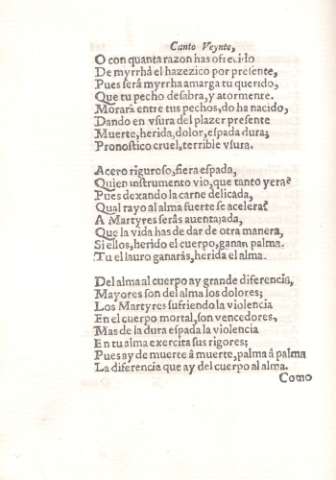 Canto Veynte,
O con quanta razon has ofrecido
De myrrha el hazezico por presente,
Pues será myrrha amarga tu querido,
Que tu pecho desabra, y atormente.
Morara entre tus pechos, do ha nacido,
Dando en vsura del plazer presente
Muerte, herida, dolor, espada dura;
Pronostico cruel, terrible vsura.
Acero riguroso, fiera espada,
Quien instrumento vio, que tanto yera?
Pues dexando la carne delicada,
Qual rayo al alma fuerte se acelera?
A Martyres serás auentajada,
Que la vida has de dar de otra manera,
Si ellos, herido el cuerpo, ganan palma.
Tu el lauro ganarás, herida el alma.
Del alma al cuerpo ay grande diferencia,
Mayores son del alma los dolores;
Los Martyres sufriendo la violencia
En el cuerpo mortal, son vencedores,
Mas de la dura espada la violencia
En tu alma exercita sus rigores;
Pues ay de muerte â muerte, palma â palma
La diferencia que ay del cuerpo al alma.
Como